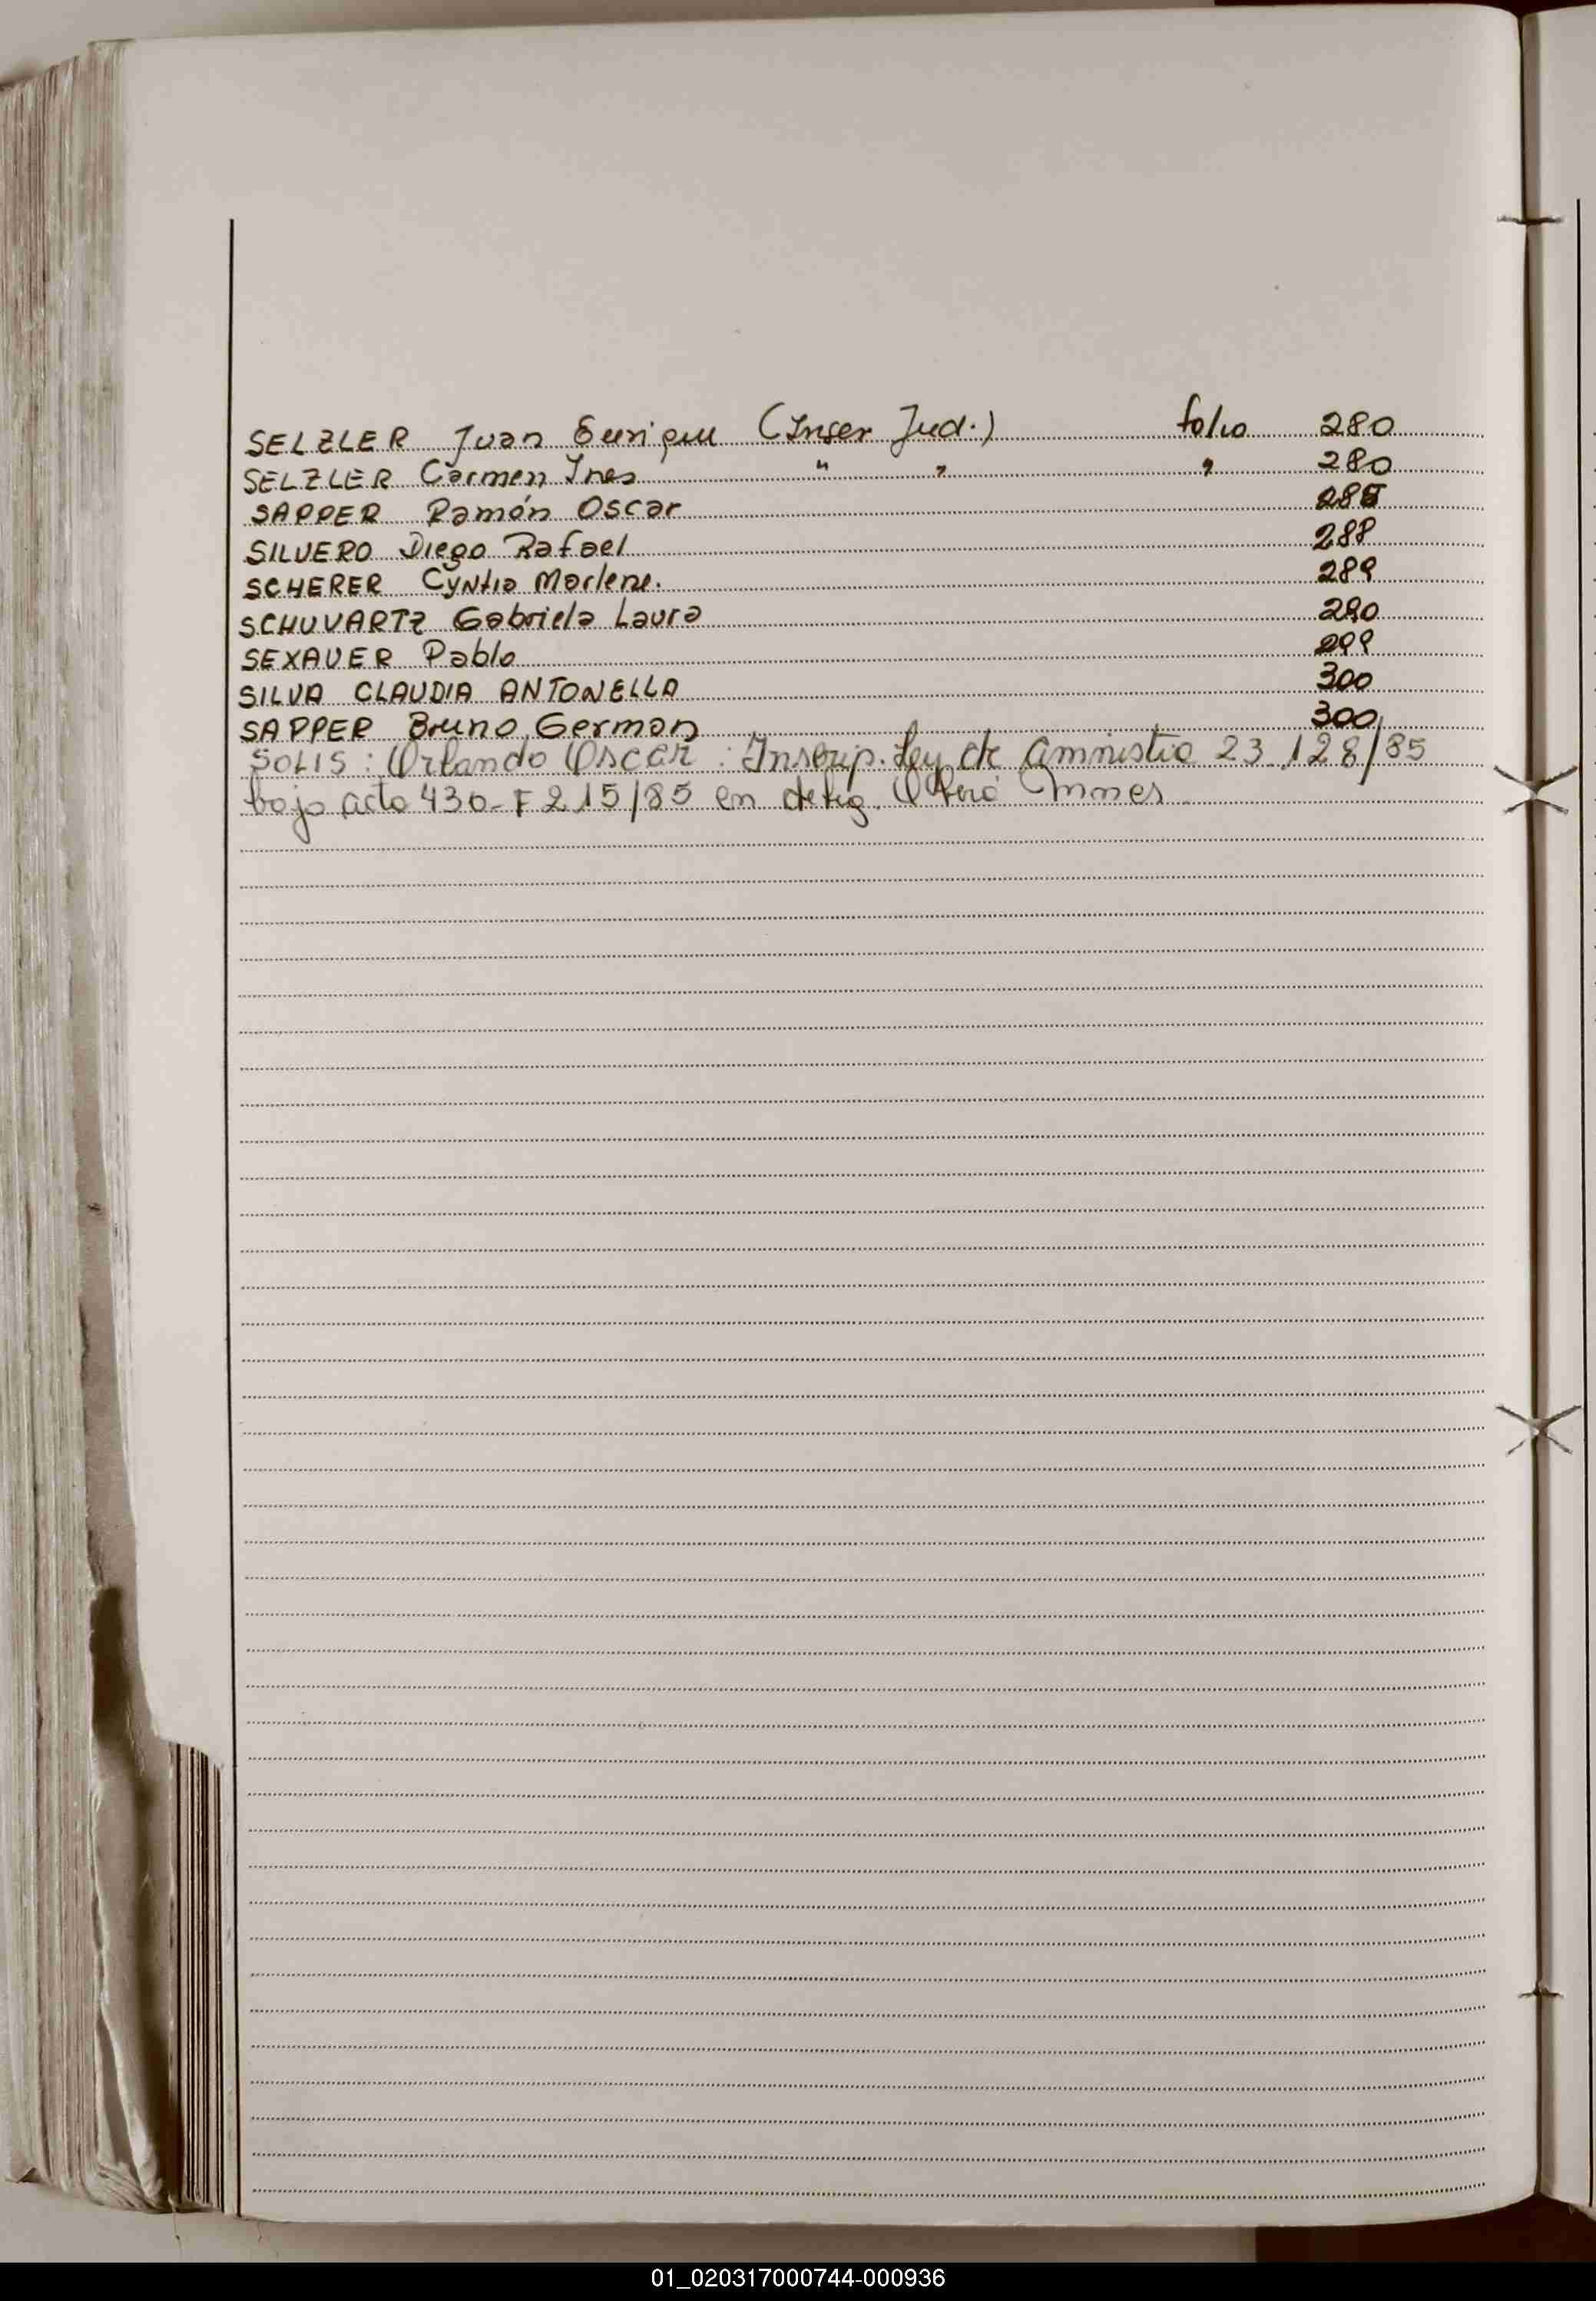 SELZLER Juan Enrique (Inser Jud.) folio 280
SELZLER Carmen Ines " " " 280
SAPPER Ramón Oscar 285
SILVERO Diego Rafael 288
SCHERER Cyntia Marlene. 289
SCHUVARTZ Gabriela Laura 290
SEXAUER Pablo 299
SILVA CLAUDIA ANTONELLA 300
SAPPER Bruno German 300
SOLIS: Orlando Oscar: Inscrip. Ley de Amnistia 23.128/85
bajo acta 430-F 215/85 en deleg.
01_020317000744-000936